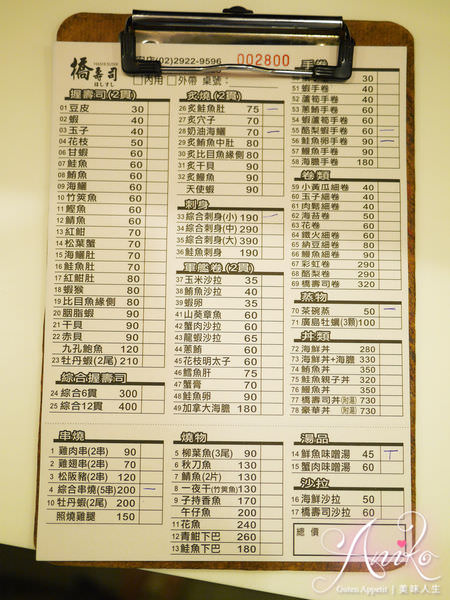 橋壽司
はしずし
(02)2922-9596
002800
□內用 □外帶 桌號：
握壽司(2貫)
01 豆皮 30
02 蝦 40
03 玉子 40
04 花枝 50
06 甘蝦 60
07 鮭魚 60
08 鮪魚 60
09 海鱺 60
10 竹筴魚 60
11 鰹魚 60
12 鯖魚 60
13 紅魽 70
14 松葉蟹 70
15 海鱺肚 70
16 鮭魚肚 70
17 紅魽肚 80
18 蝦猴 80
19 比目魚緣側 80
20 胭脂蝦 90
21 干貝 90
22 赤貝 90
九孔鮑魚 120
23 牡丹蝦(2尾) 210
綜合握壽司
24 綜合6貫 300
25 綜合12貫 400
炙燒(2貫)
26 炙鮭魚肚 75 一
27 炙穴子 70
28 奶油海鱺 70 一
29 炙鮪魚中肚 80
30 炙比目魚緣側 80
32 炙鰻魚 80
天使蝦 90
刺身
33 綜合刺身(小) 190 一
34 綜合刺身(中) 290
35 綜合刺身(大) 390
36 鮭魚刺身 190
軍艦卷(2貫)
37 玉米沙拉 35
38 鮪魚沙拉 40
39 蝦卵 35
41 山葵章魚 60
42 蟹肉沙拉 60
43 龍蝦沙拉 65
44 蔥鮪 60
45 花枝明太子 60
46 鱈魚肝 75
47 蟹膏 70
48 鮭魚卵 90
49 加拿大海膽 180
手卷
51 蝦手卷 40
52 蘆筍手卷 40
53 蔥鮪手卷 60
54 蝦蘆筍手卷 60
55 酪梨蝦手卷 60 一
56 鮭魚卵手卷 90 一
57 鰻魚手卷 90
58 海膽手卷 180
卷類
59 小黃瓜細卷 40
60 玉子細卷 40
61 肉鬆細卷 40
62 海苔卷 50
63 花卷 60
64 鐵火細卷 60
65 納豆細卷 80
66 鰻魚細卷 90
67 彩虹卷 290
68 酪梨卷 290
69 橋壽司卷 320
蒸物
70 茶碗蒸 50 一
71 廣島牡蠣(3顆) 100
丼類
72 海鮮丼 280
73 海鮮丼+海膽 330
74 鮪魚丼 350
75 鮭魚親子丼 320
76 鰻魚丼 350
77 橋壽司丼(附湯) 330
78 豪華丼(附湯) 380
串燒
1 雞肉串(2串) 90
2 雞翅串(2串) 70
3 松阪豬(2串) 120
4 綜合串燒(5串) 200 一
10 牡丹蝦(2尾) 200
照燒雞腿 150
燒物
5 柳葉魚(3尾) 90
6 秋刀魚 130
7 鯖魚(2片) 130
8 一夜干(竹筴魚) 130
9 子持香魚 170
午仔魚 200
11 花魚 240
12 青魽下巴 260
13 鮭魚下巴 180
湯品
14 鮮魚味噌湯 45 T
15 蟹肉味噌湯 60
沙拉
16 海鮮沙拉 50
17 橋壽司沙拉 60
總價
Aniko
Guten Appetit | 美味人生